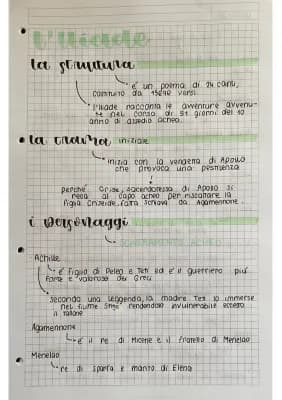 L'Iliade
la struttura
è un poema di 24 canti,
composto da 15696 versi.
l'Iliade racconta le avventure avvenu-
te nel corso di 51 giorni del 10
anno di assedio acheo.
la trama iniziale
inizia con la vendetta di Apollo
che provoca una pestilenza
perché Crise, sacerdotessa di Apollo si
reca al capo acheo per riscattare la
figlia Criseide fatta schiava da Agamennone.
i personaggi
SCHIERAMENTO ACHEO
Achille
è figlio di Peleo e Teti ed è il guerriero più
forte e valoroso dei Greci
secondo una leggenda, la madre Teti lo immerse
nel fiume Stige rendendolo invulnerabile eccetto
il tallone
Agamennone
è il re di Micene e il fratello di Menelao
Menelao
re di Sparta e marito di Elena